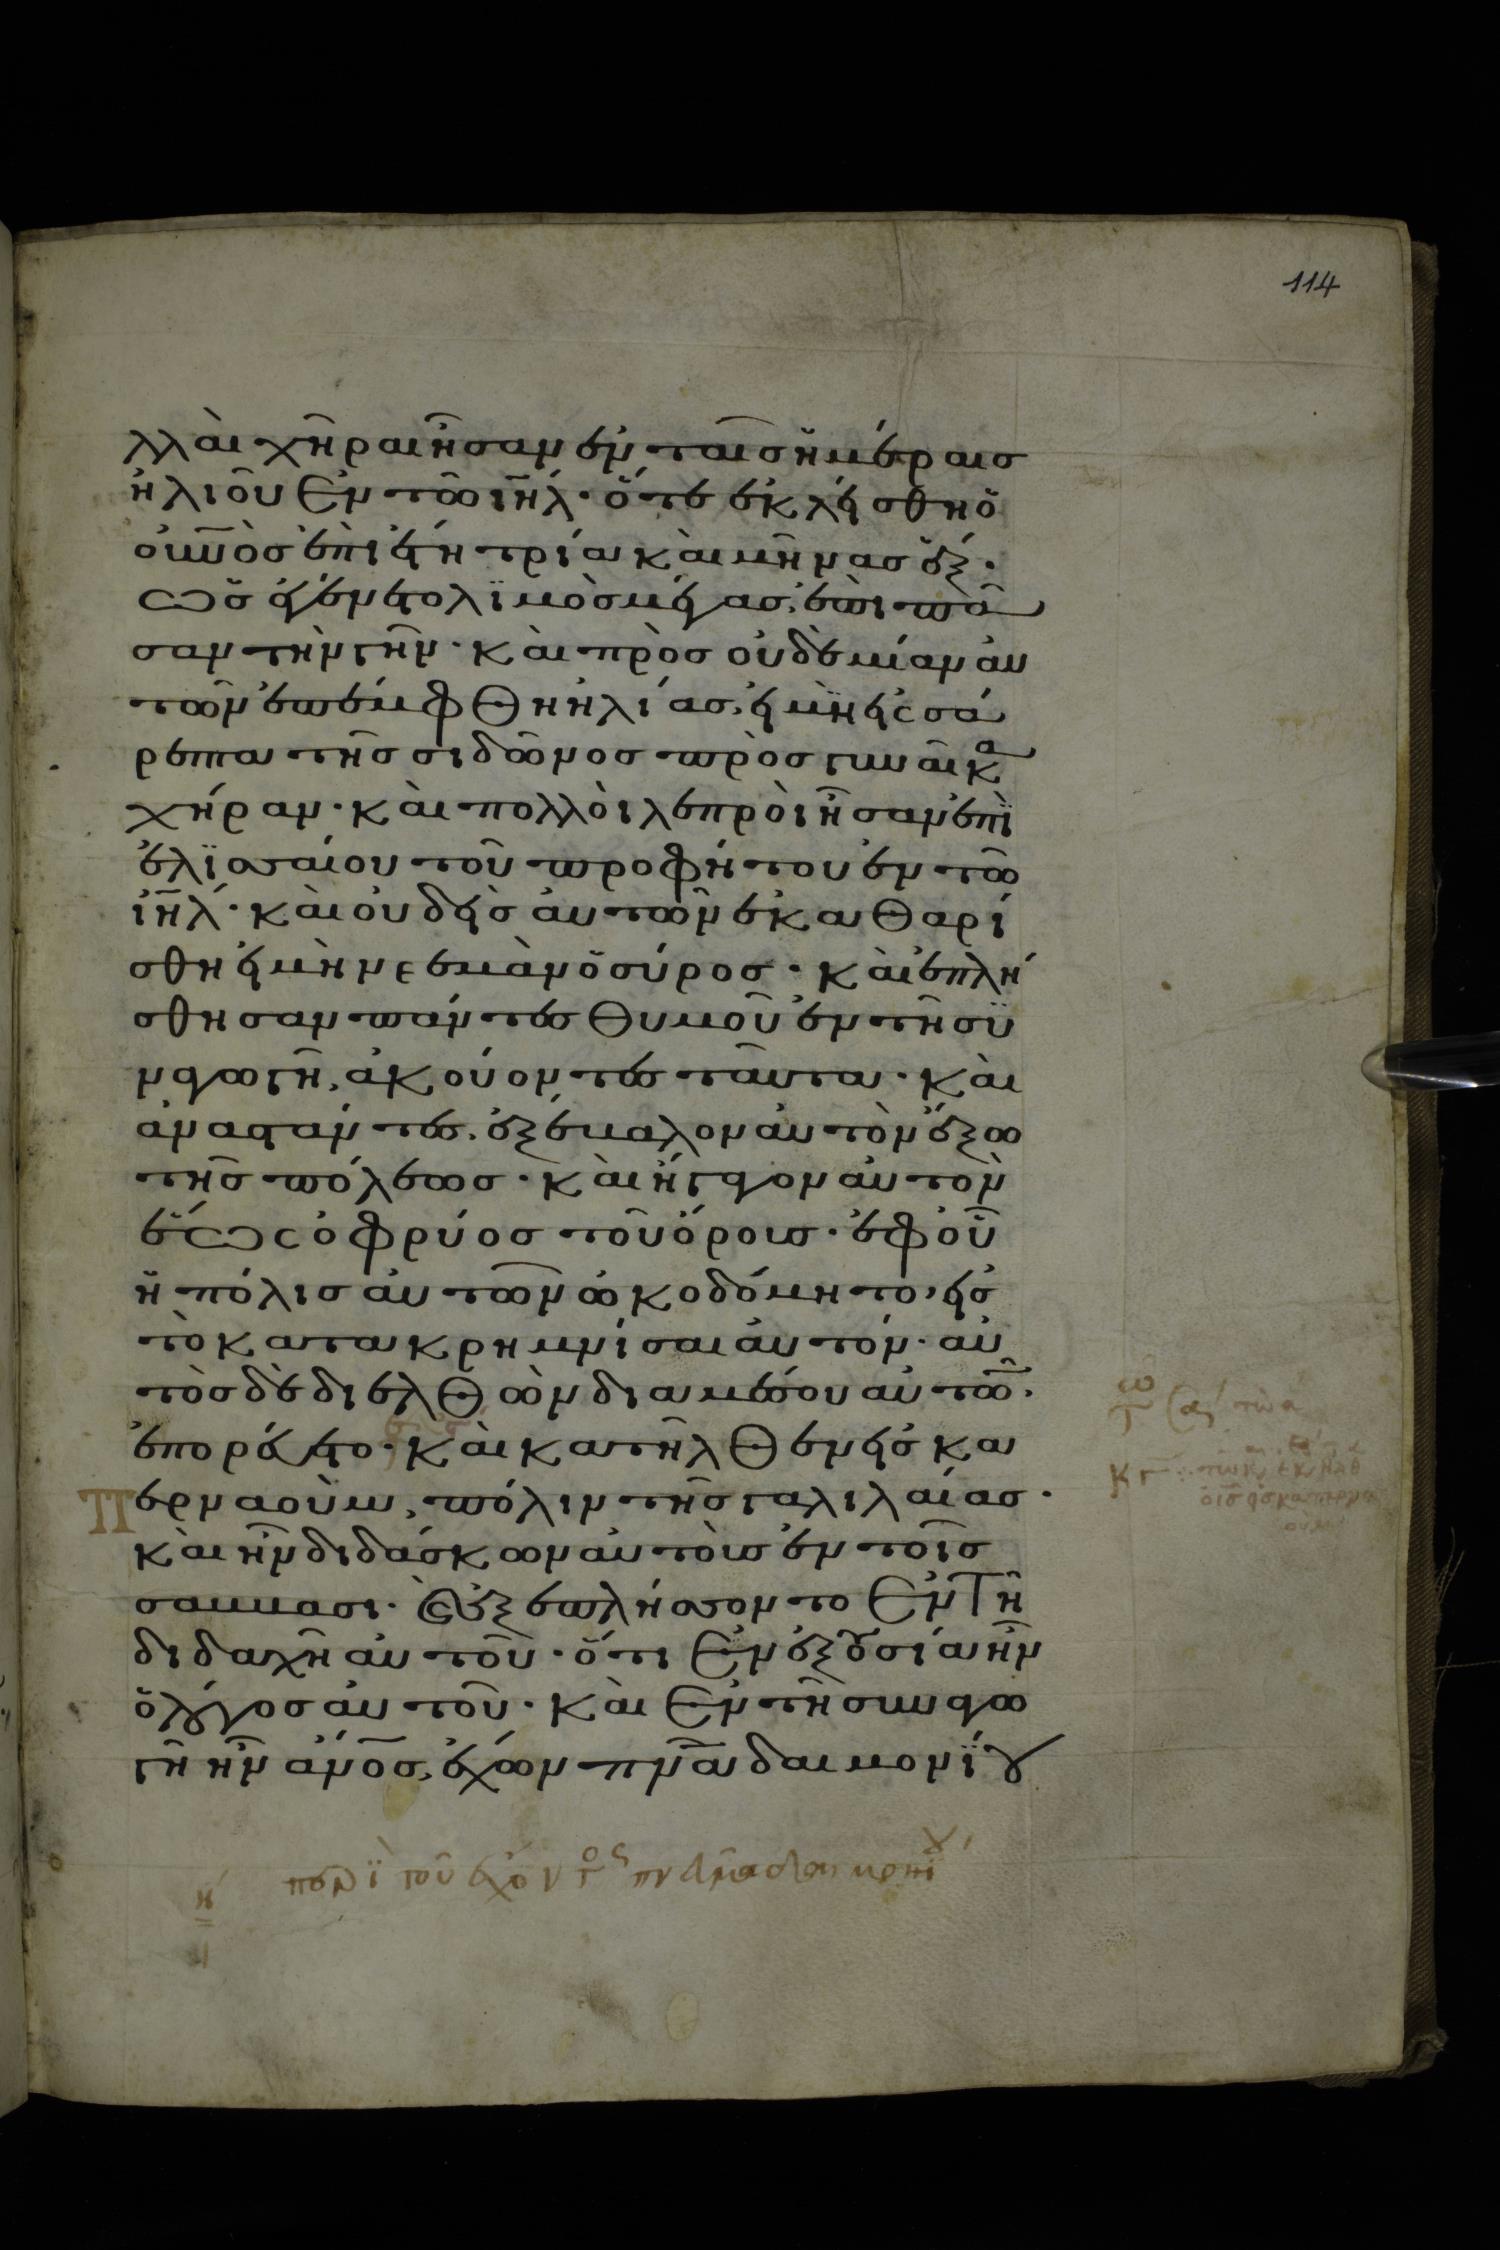 114
λλαὶ χῆραι ἦσαν ἐν ταῖς ἡμέραις
ἠλιοῦ ἐν τῶ ιη̅λ· ὅτε ἐκλείσθη ὁ
οὐνο̅ς ἐπι ἔτη τρία καὶ μῆνας ἕξ·
ὡς ἐγένετο λϊμὸς μέγας, ἐπι πᾶ
σαν τὴν γῆν· καὶ πρὸς οὐδεμίαν αὐ
τῶν ἐπέμφθη ἠλίας, εἰ μὴ εἰς σά
ρεπτα τῆς σιδῶνος πρὸς γυναῖκα
χήραν· καὶ πολλοὶ λεπροὶ ἦσαν ἐπϊ
ἐλϊσσαίου τοῦ προφήτου ἐν τῶ
ιη̅λ· καὶ οὐδεὶς αὐτῶν ἐκαθαρί
σθη εἰ μὴ νεεμὰν ὁ σύρος· καὶ ἐπλή
σθησαν πάντες θυμοῦ ἐν τῆ συ
ναγωγῆ, ἀκούοντες ταῦτα· καὶ
ἀναστάντες, ἐξέβαλον αὐτὸν ἔξω
τῆς πόλεως· καὶ ἤγαγον αὐτὸν
ἕως ὀφρύος τοῦ ὄρους· ἐφ οὗ
ἡ πόλις αὐτῶν ὠκοδόμητο, εἰς
τὸ κατακρημνίσαι αὐτόν· αὐ
τὸς δὲ διελθὼν δια μέσου αὐτῶν·
ἐπορεύετο· καὶ κατῆλθεν εἰς κα
περναοὺμ, πόλιν τῆς γαλιλαίας·
καὶ ἦν διδάσκων αὐτοὺς ἐν τοῖς
σάββασι· καὶ ἐξεπλήσσοντο ἐν τῆ
διδαχῆ αὐτοῦ· ὅτι ἐν ἐξουσία ἦν
ὁ λόγος αὐτοῦ· καὶ ἐν τῆ συναγω
γῆ ἦν ἄνο̅ς, ἔχων πνα̅ δαιμονΐου
η περϊ τοῦ ἔχοντος πνεῦμα δαιμονΐου